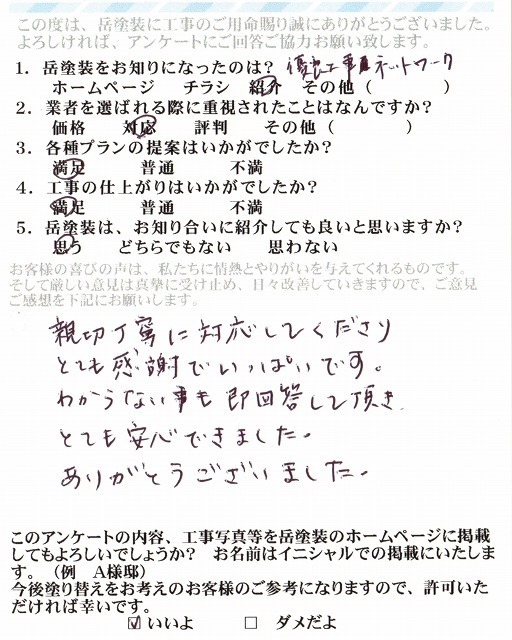 この度は、岳塗装に工事のご用命賜り誠にありがとうございました。
よろしければ、アンケートにご回答ご協力お願い致します。
1．岳塗装をお知りになったのは？ 優良工事店ネットワーク
ホームページ　チラシ　紹介　その他（　　　　）
2．業者を選ばれる際に重視されたことはなんですか？
価格　対応　評判　その他（　　　　）
3．各種プランの提案はいかがでしたか？
満足　普通　不満
4．工事の仕上がりはいかがでしたか？
満足　普通　不満
5．岳塗装は、お知り合いに紹介しても良いと思いますか？
思う　どちらでもない　思わない
お客様の喜びの声は、私たちに情熱とやりがいを与えてくれるものです。
そして厳しい意見は真摯に受け止め、日々改善していきますので、ご意見
ご感想を下記にお願いします。
親切丁寧に対応してくださり
とても感謝でいっぱいです。
わからない事も即回答して頂き
とても安心できました。
ありがとうございました。
このアンケートの内容、工事写真等を岳塗装のホームページに掲載
してもよろしいでしょうか？　お名前はイニシャルでの掲載にいたしま
す。（例　A様邸）
今後塗り替えをお考えのお客様のご参考になりますので、許可いた
だければ幸いです。
☑ いいよ　□ ダメだよ